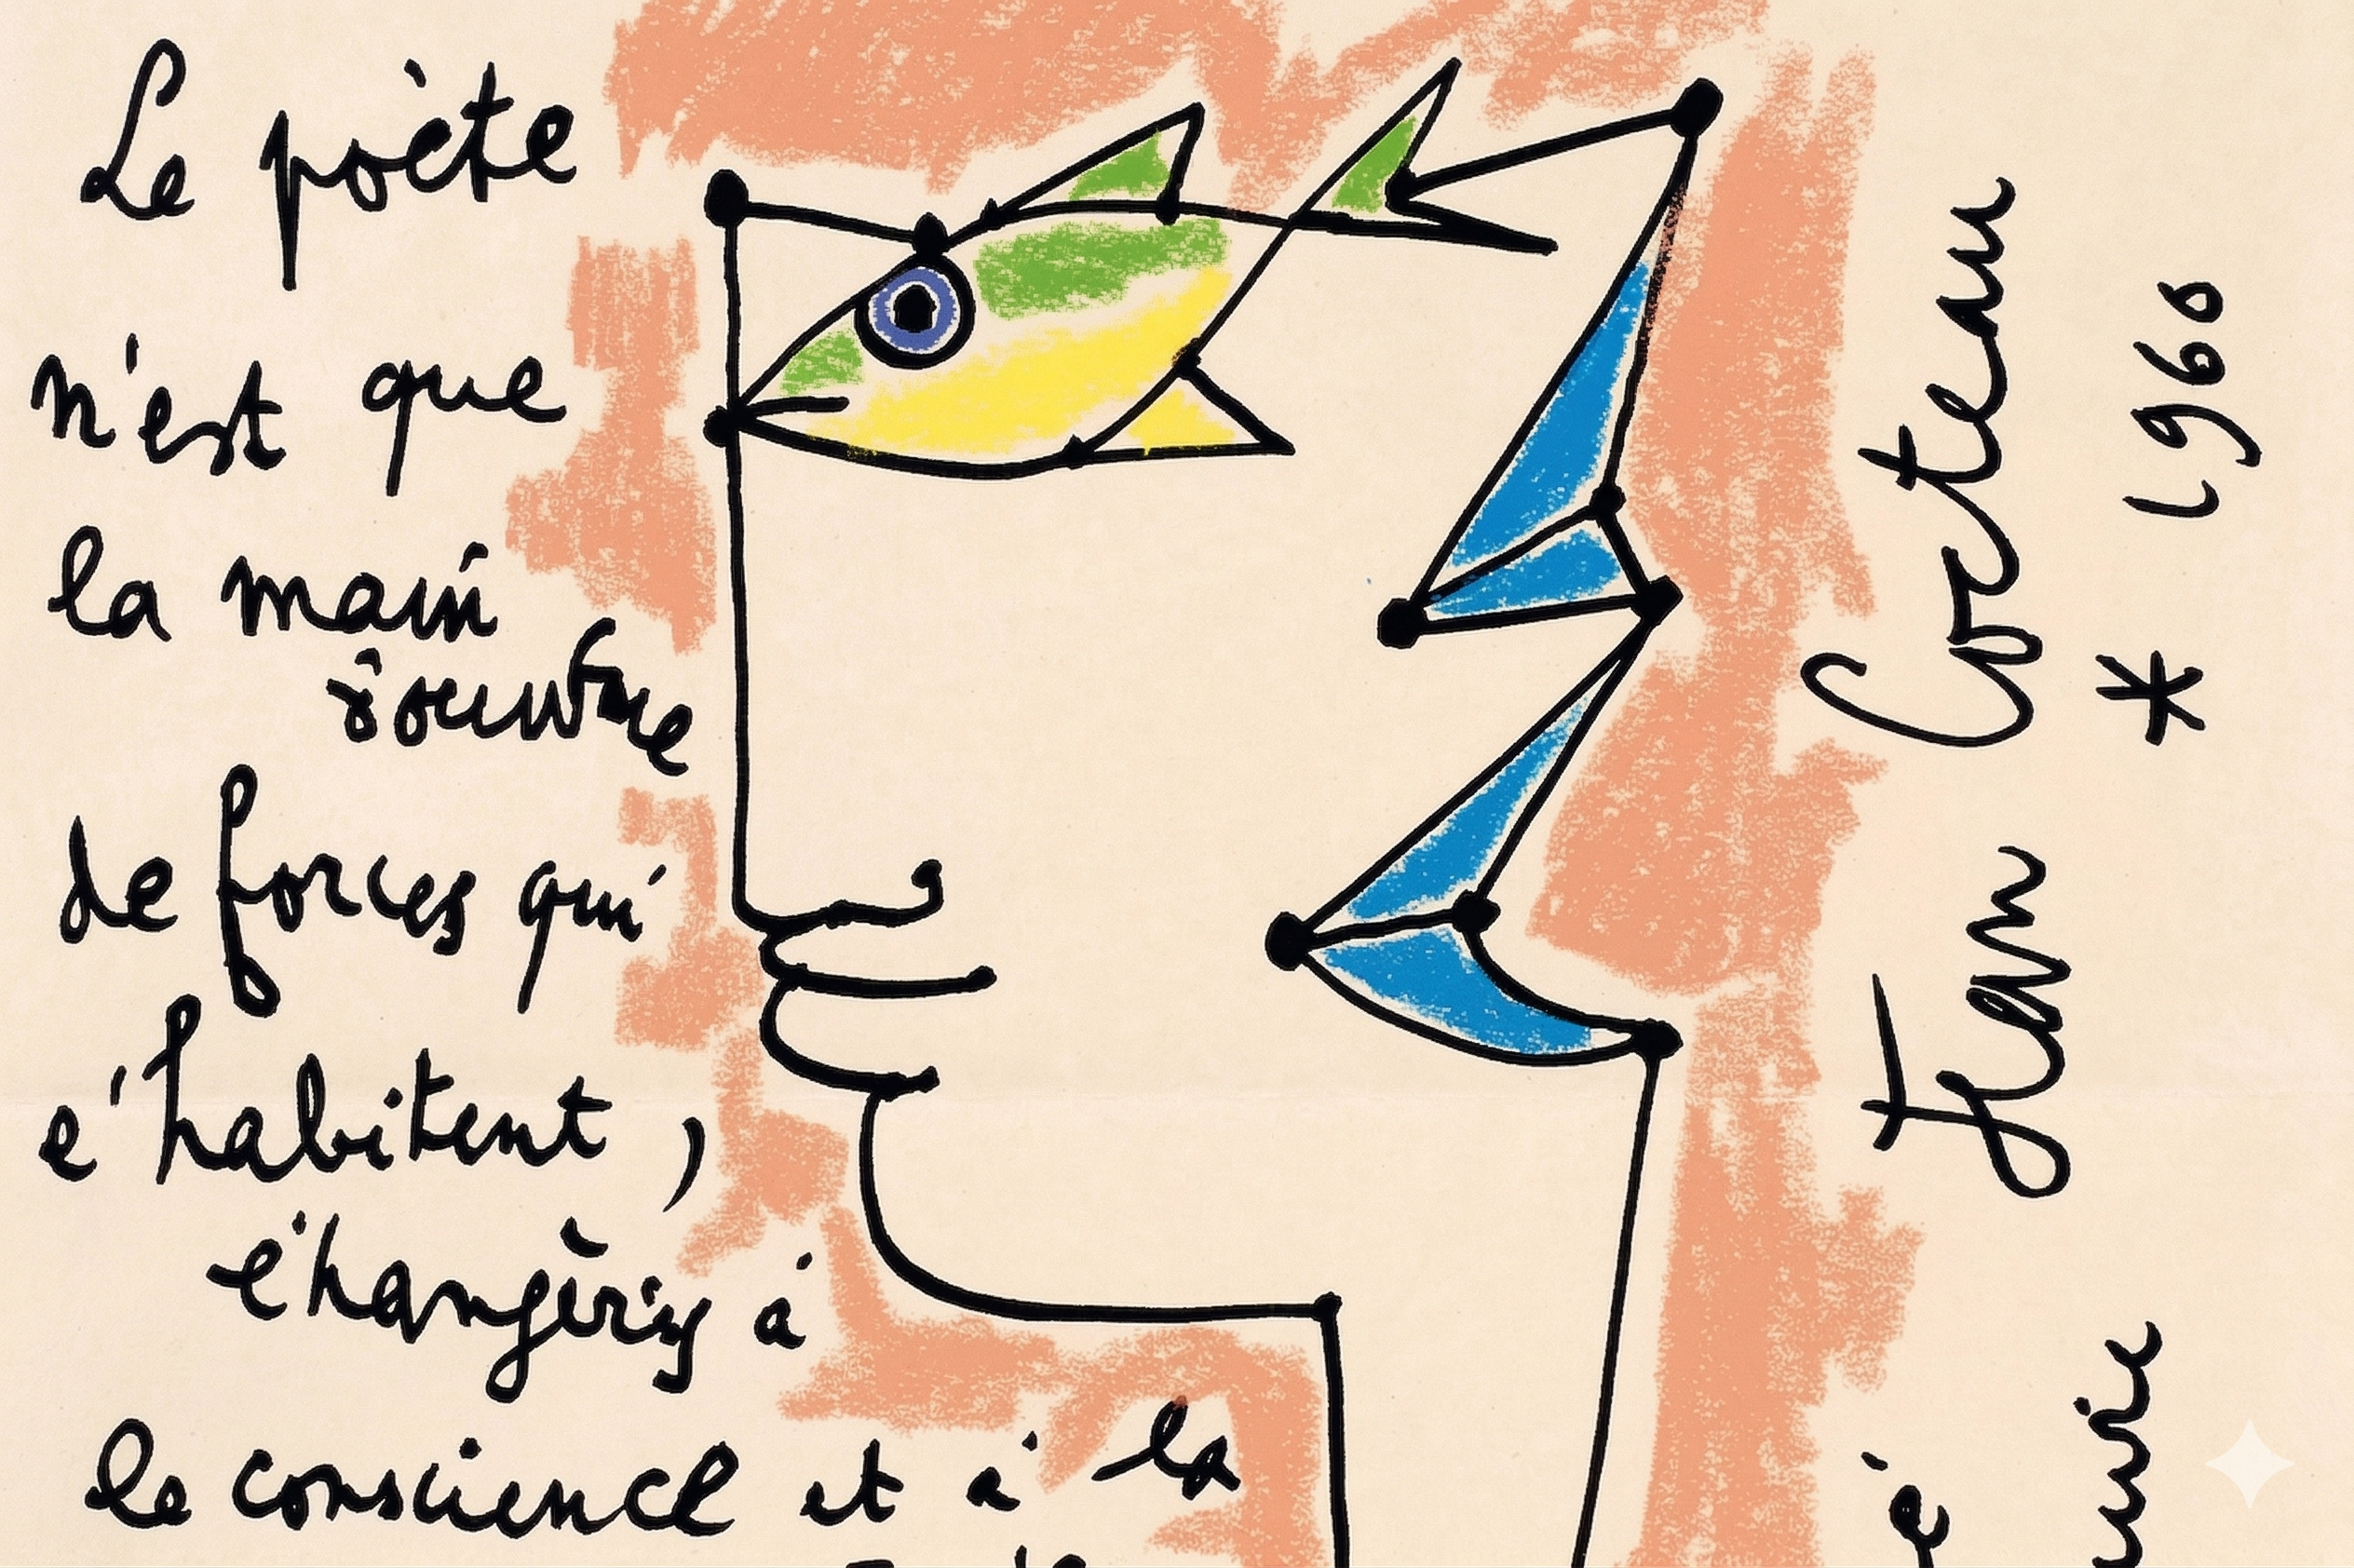 Le poète
n'est que
la main
de forces qui
l'habitent,
à
le conscience et à la
Jean Cocteau
* 1960